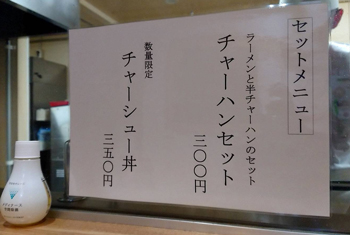 セットメニュー
ラーメンと半チャーハンのセット
チャーハンセット
三〇〇円
数量限定
チャーシュー丼
三五〇円